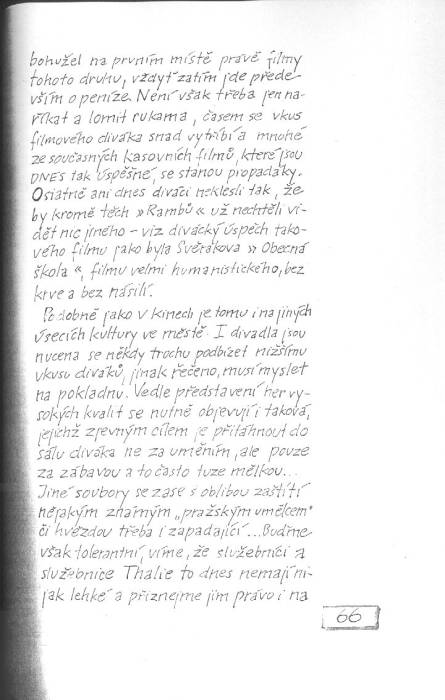 bohužel na prvním místě právě filmy
tohoto druhu, vždyť zatím jde přede-
vším o peníze. Není však třeba jen na-
říkat a lomit rukama, časem se vkus
filmového diváka snad vytříbí a mnohé
ze současných kasovních filmů, které jsou
DNES tak úspěšné, se stanou propadáky.
Ostatně ani dnes diváci neklesli tak, že-
by kromě těch » Rambů « už nechtěli vi-
dět nic jiného - viz divácký úspěch tako-
vého filmu jako byla Svěrákova » Obecná
škola «, filmu velmi humanistického, bez
krve a bez násilí.
Podobně jako v kinech je tomu i na jiných
úsecích kultury ve městě. I divadla jsou
nucena se někdy trochu podbízet nižšímu
vkusu diváků, jinak řečeno, musí myslet
na pokladnu. Vedle představení her vy-
sokých kvalit se nutně objevují i taková,
jejichž zjevným cílem je přitáhnout do
sálu diváka ne za uměním, ale pouze
za zábavou a to často tuze mělkou...
Jiné soubory se zase s oblibou zaštítí
nějakým známým „pražským umělcem"
či hvězdou třeba i zapadající... Buďme
však tolerantní, víme, že služebníci a
služebnice Thalie to dnes nemají ni-
jak lehké a přiznejme jim právo i na
66